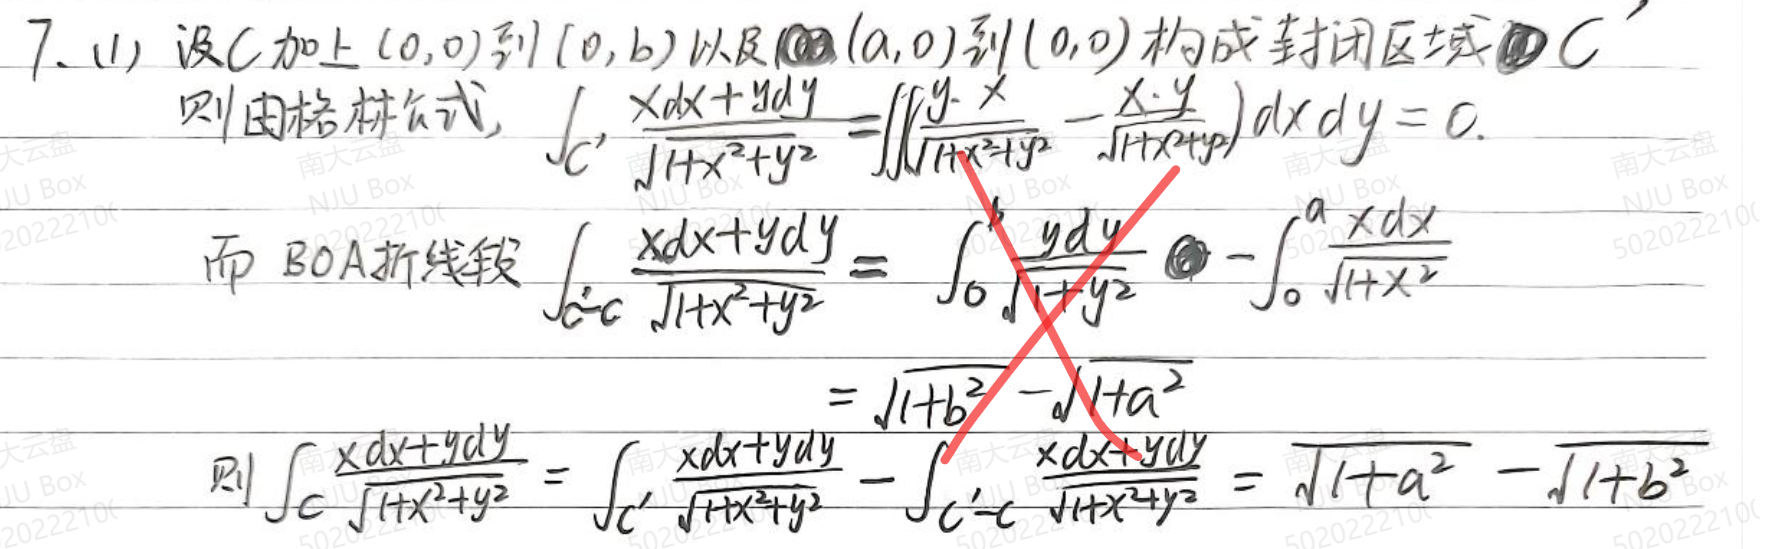 7. (1) 设C加上(0,0)到(0,b)以及(a,0)到(0,0)构成封闭区域C'
则由格林公式, ∫_{C'} (xdx+ydy)/√(1+x²+y²) = ∬(y·x/√(1+x²+y²) − x·y/√(1+x²+y²))dxdy = 0.
而BOA折线段 ∫_{C'-C} (xdx+ydy)/√(1+x²+y²) = ∫_0^b ydy/√(1+y²) − ∫_0^a xdx/√(1+x²)
= √(1+b²) − √(1+a²)
则 ∫_C (xdx+ydy)/√(1+x²+y²) = ∫_{C'} (xdx+ydy)/√(1+x²+y²) − ∫_{C'-C} (xdx+ydy)/√(1+x²+y²) = √(1+a²) − √(1+b²)
南大云盘
NJU Box